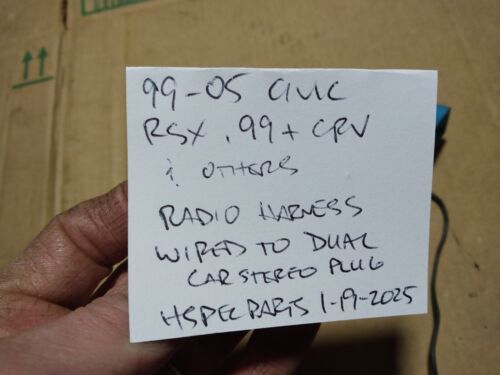 99-05 CIVIC
RSX, 99+ CRV
& OTHERS
RADIO HARNESS
WIRED TO DUAL
CAR STEREO PLUG
HSPECPARTS 1-19-2025